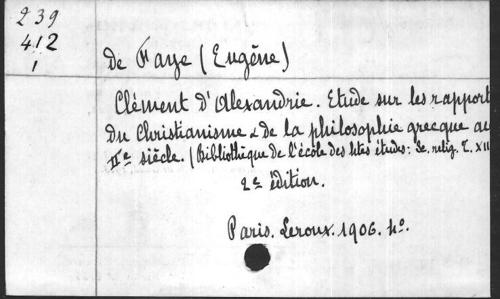 239
412
1
de Faye (Eugène)
Clément d'Alexandrie. Etude sur les rapport
du Christianisme & de la philosophie grecque au
IIe siècle. (Bibliothèque de l'école des htes études: Sc. relig. T. XII
2e édition.
Paris. Leroux. 1906. 4o.